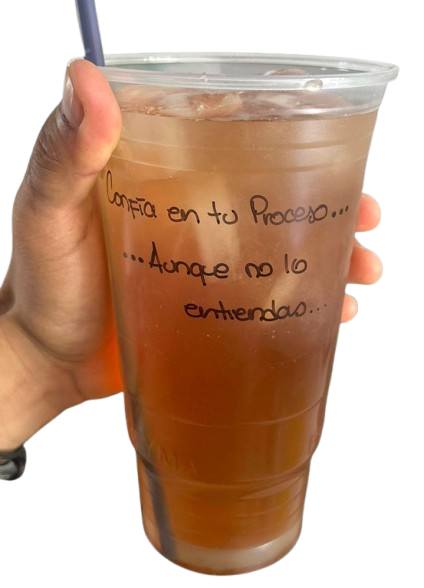 Confía en tu Proceso...
...Aunque no lo
entiendas...